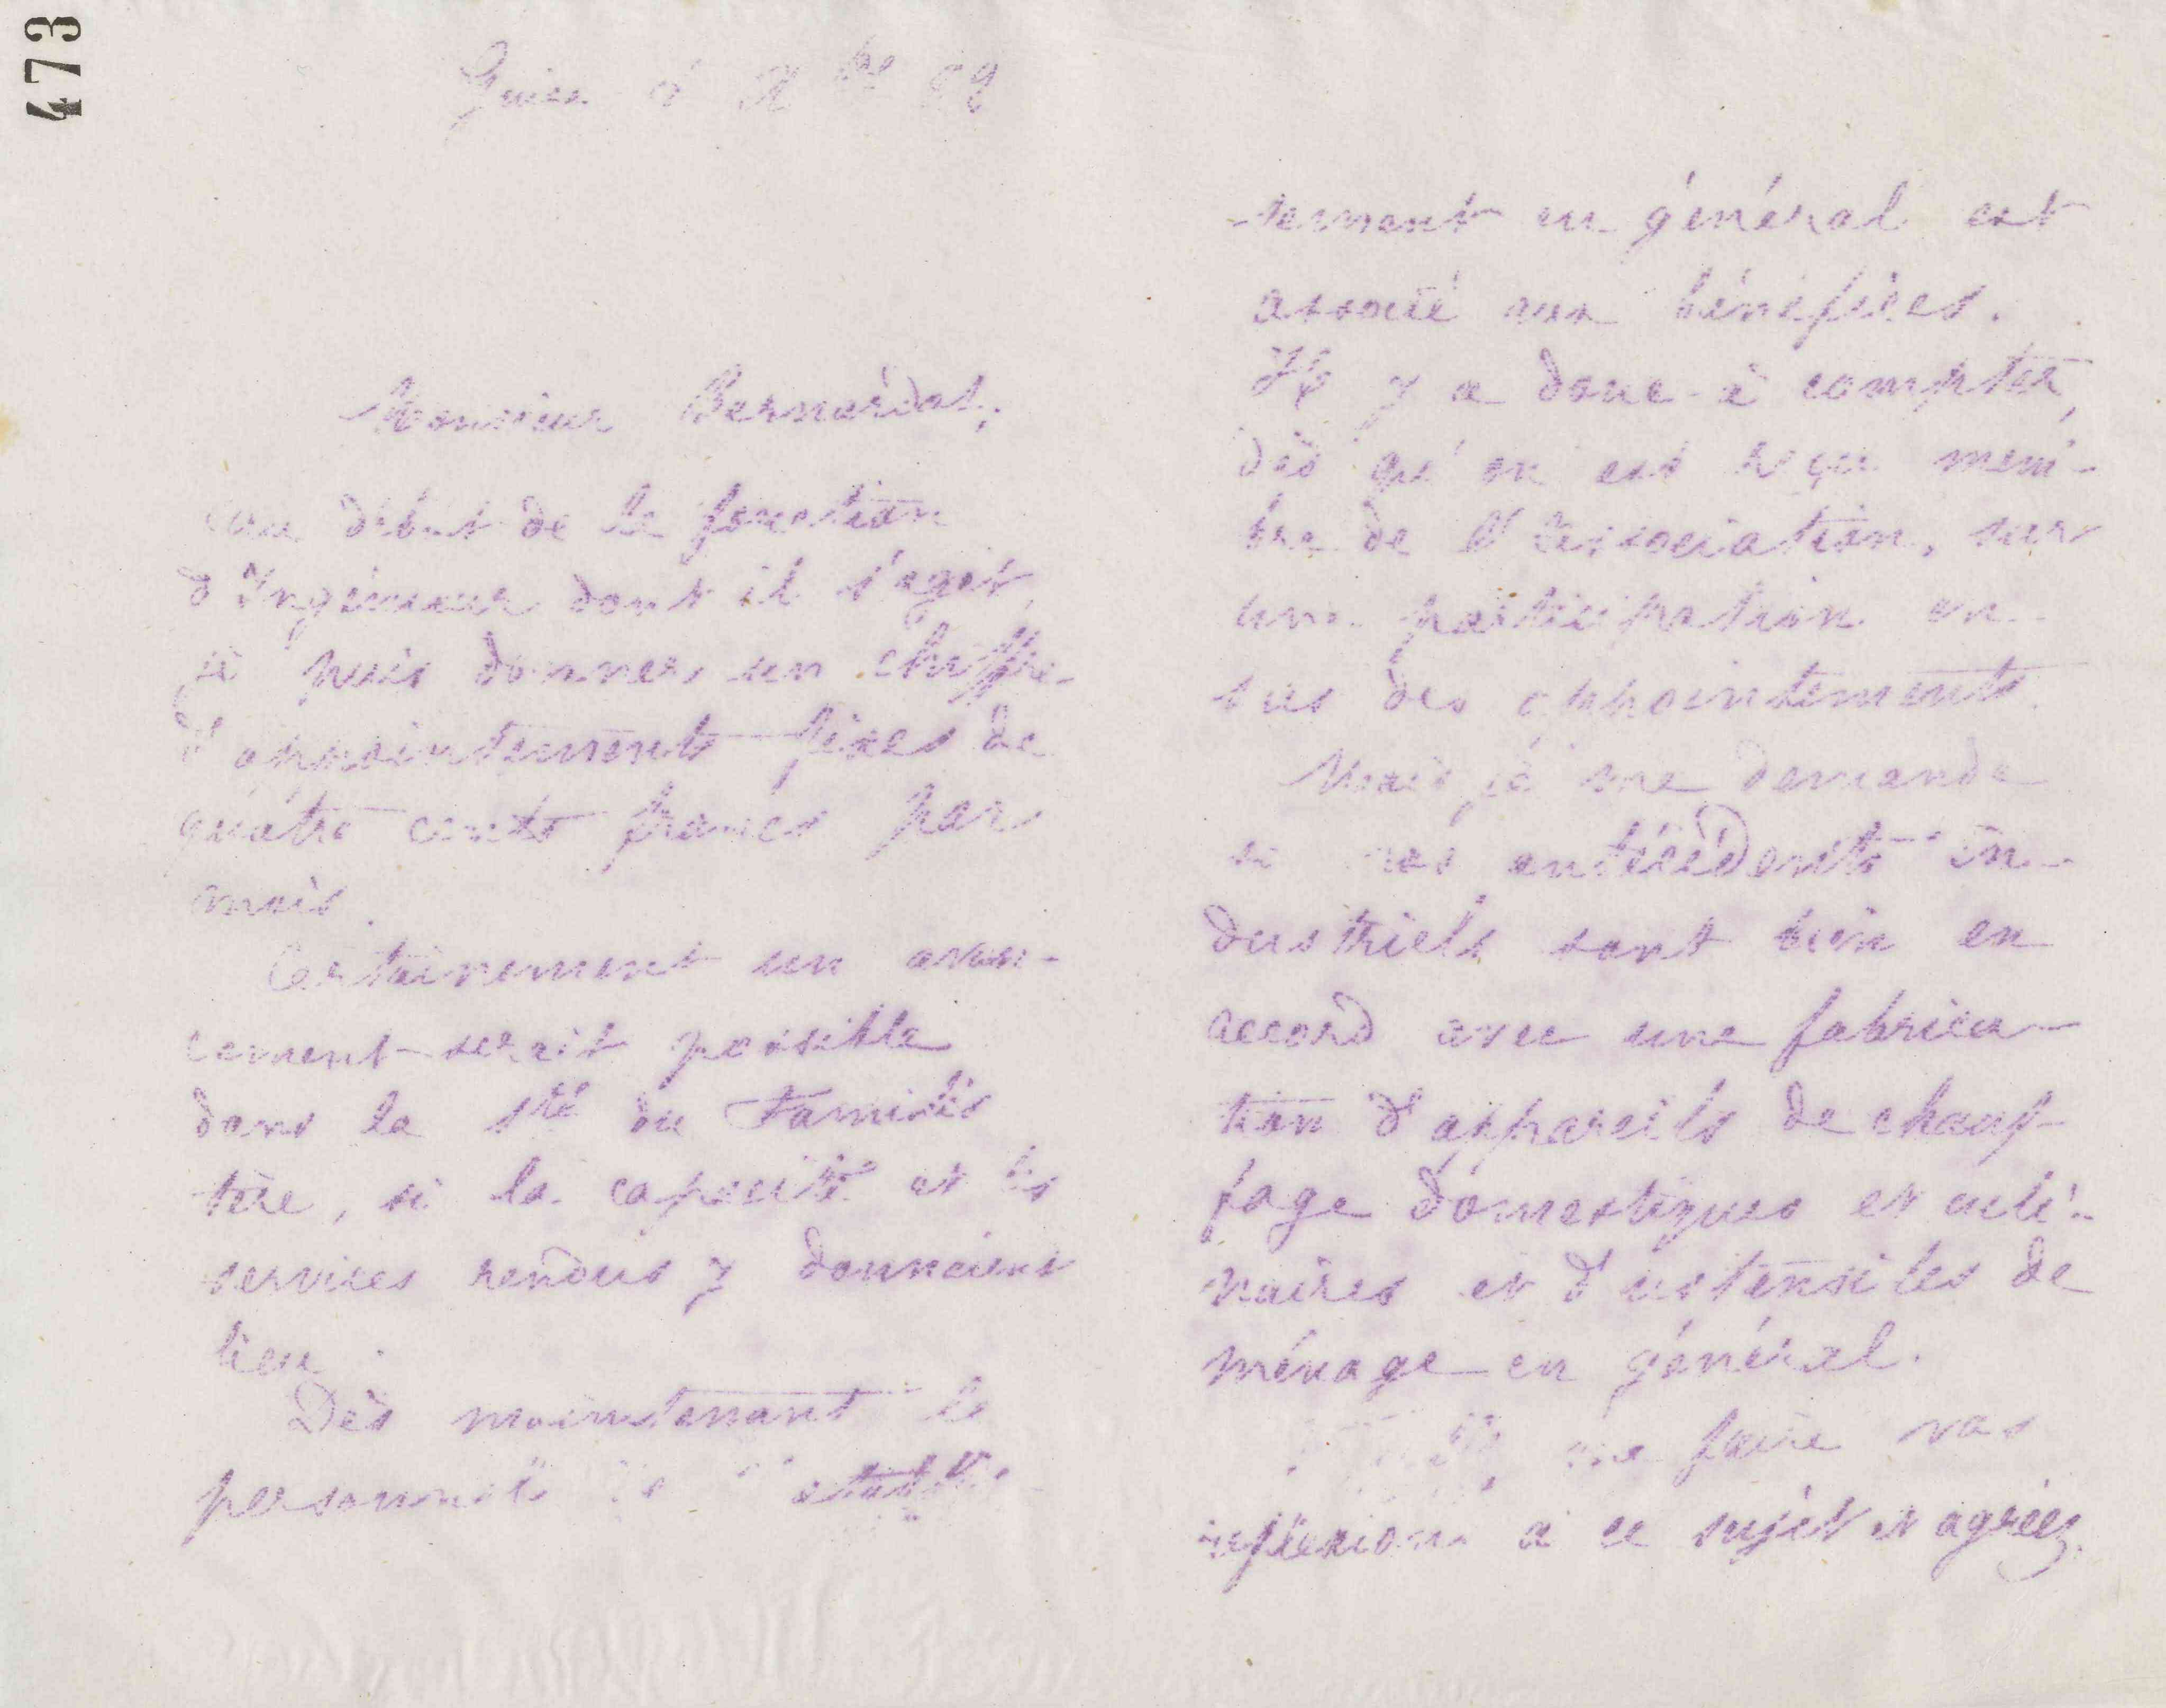 473
Guise 6 Xbre 82
Monsieur Bernardot,
au début de la fonction
d'Ingénieur dont il s'agit
je puis donner un chiffre
d'appointements fixes de
quatre cents francs par
mois.
Certainement un avan-
cement serait possible
dans la Sté du Familis
tère, si la capacité et les
services rendus y donnaient
lieu.
Dès maintenant le
personnel
-tement en général est
associé aux bénéfices.
Il y a donc à compter,
dès qu'on est reçu mem-
bre de l'Association, sur
une participation en
sus des appointements.
Mais je me demande
si vos antécédents in-
dustriels sont bien en
accord avec une fabrica-
tion d'appareils de chauf-
fage domestiques et culi-
naires et d'ustensiles de
ménage en général.
me faire vos
réflexions à ce sujet et agréez